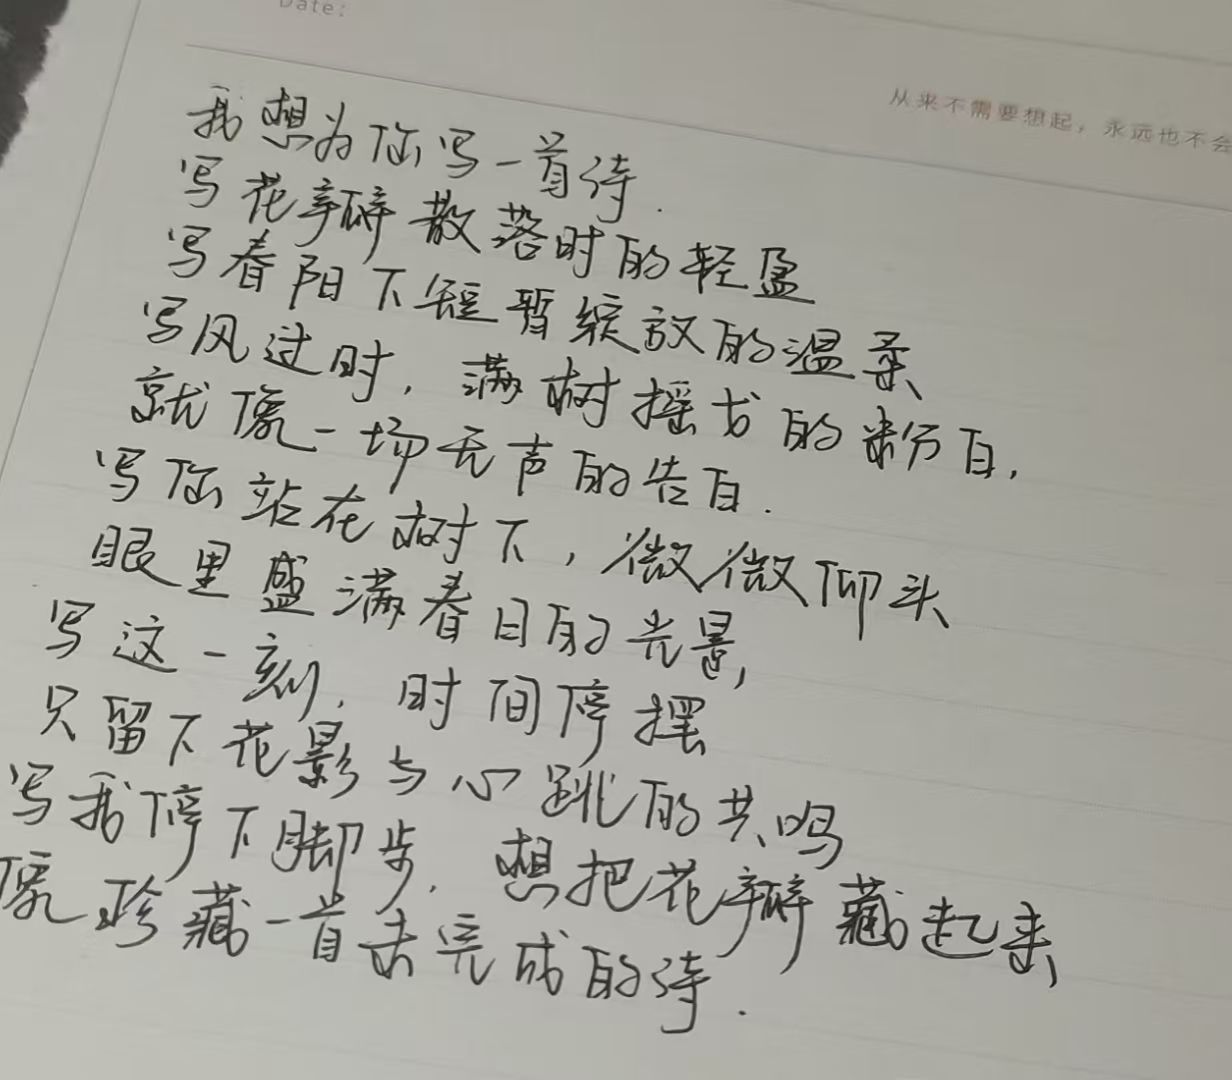 Date:
从来不需要想起，永远也不会
我想为你写一首诗.
写花瓣散落时的轻盈
写春阳下短暂绽放的温柔
写风过时，满树摇曳的粉白，
就像一场无声的告白.
写你站在树下，微微仰头
眼里盛满春日的光景，
写这一刻，时间停摆
只留下花影与心跳的共鸣
写我停下脚步，想把花瓣藏起来
像珍藏一首未完成的诗.